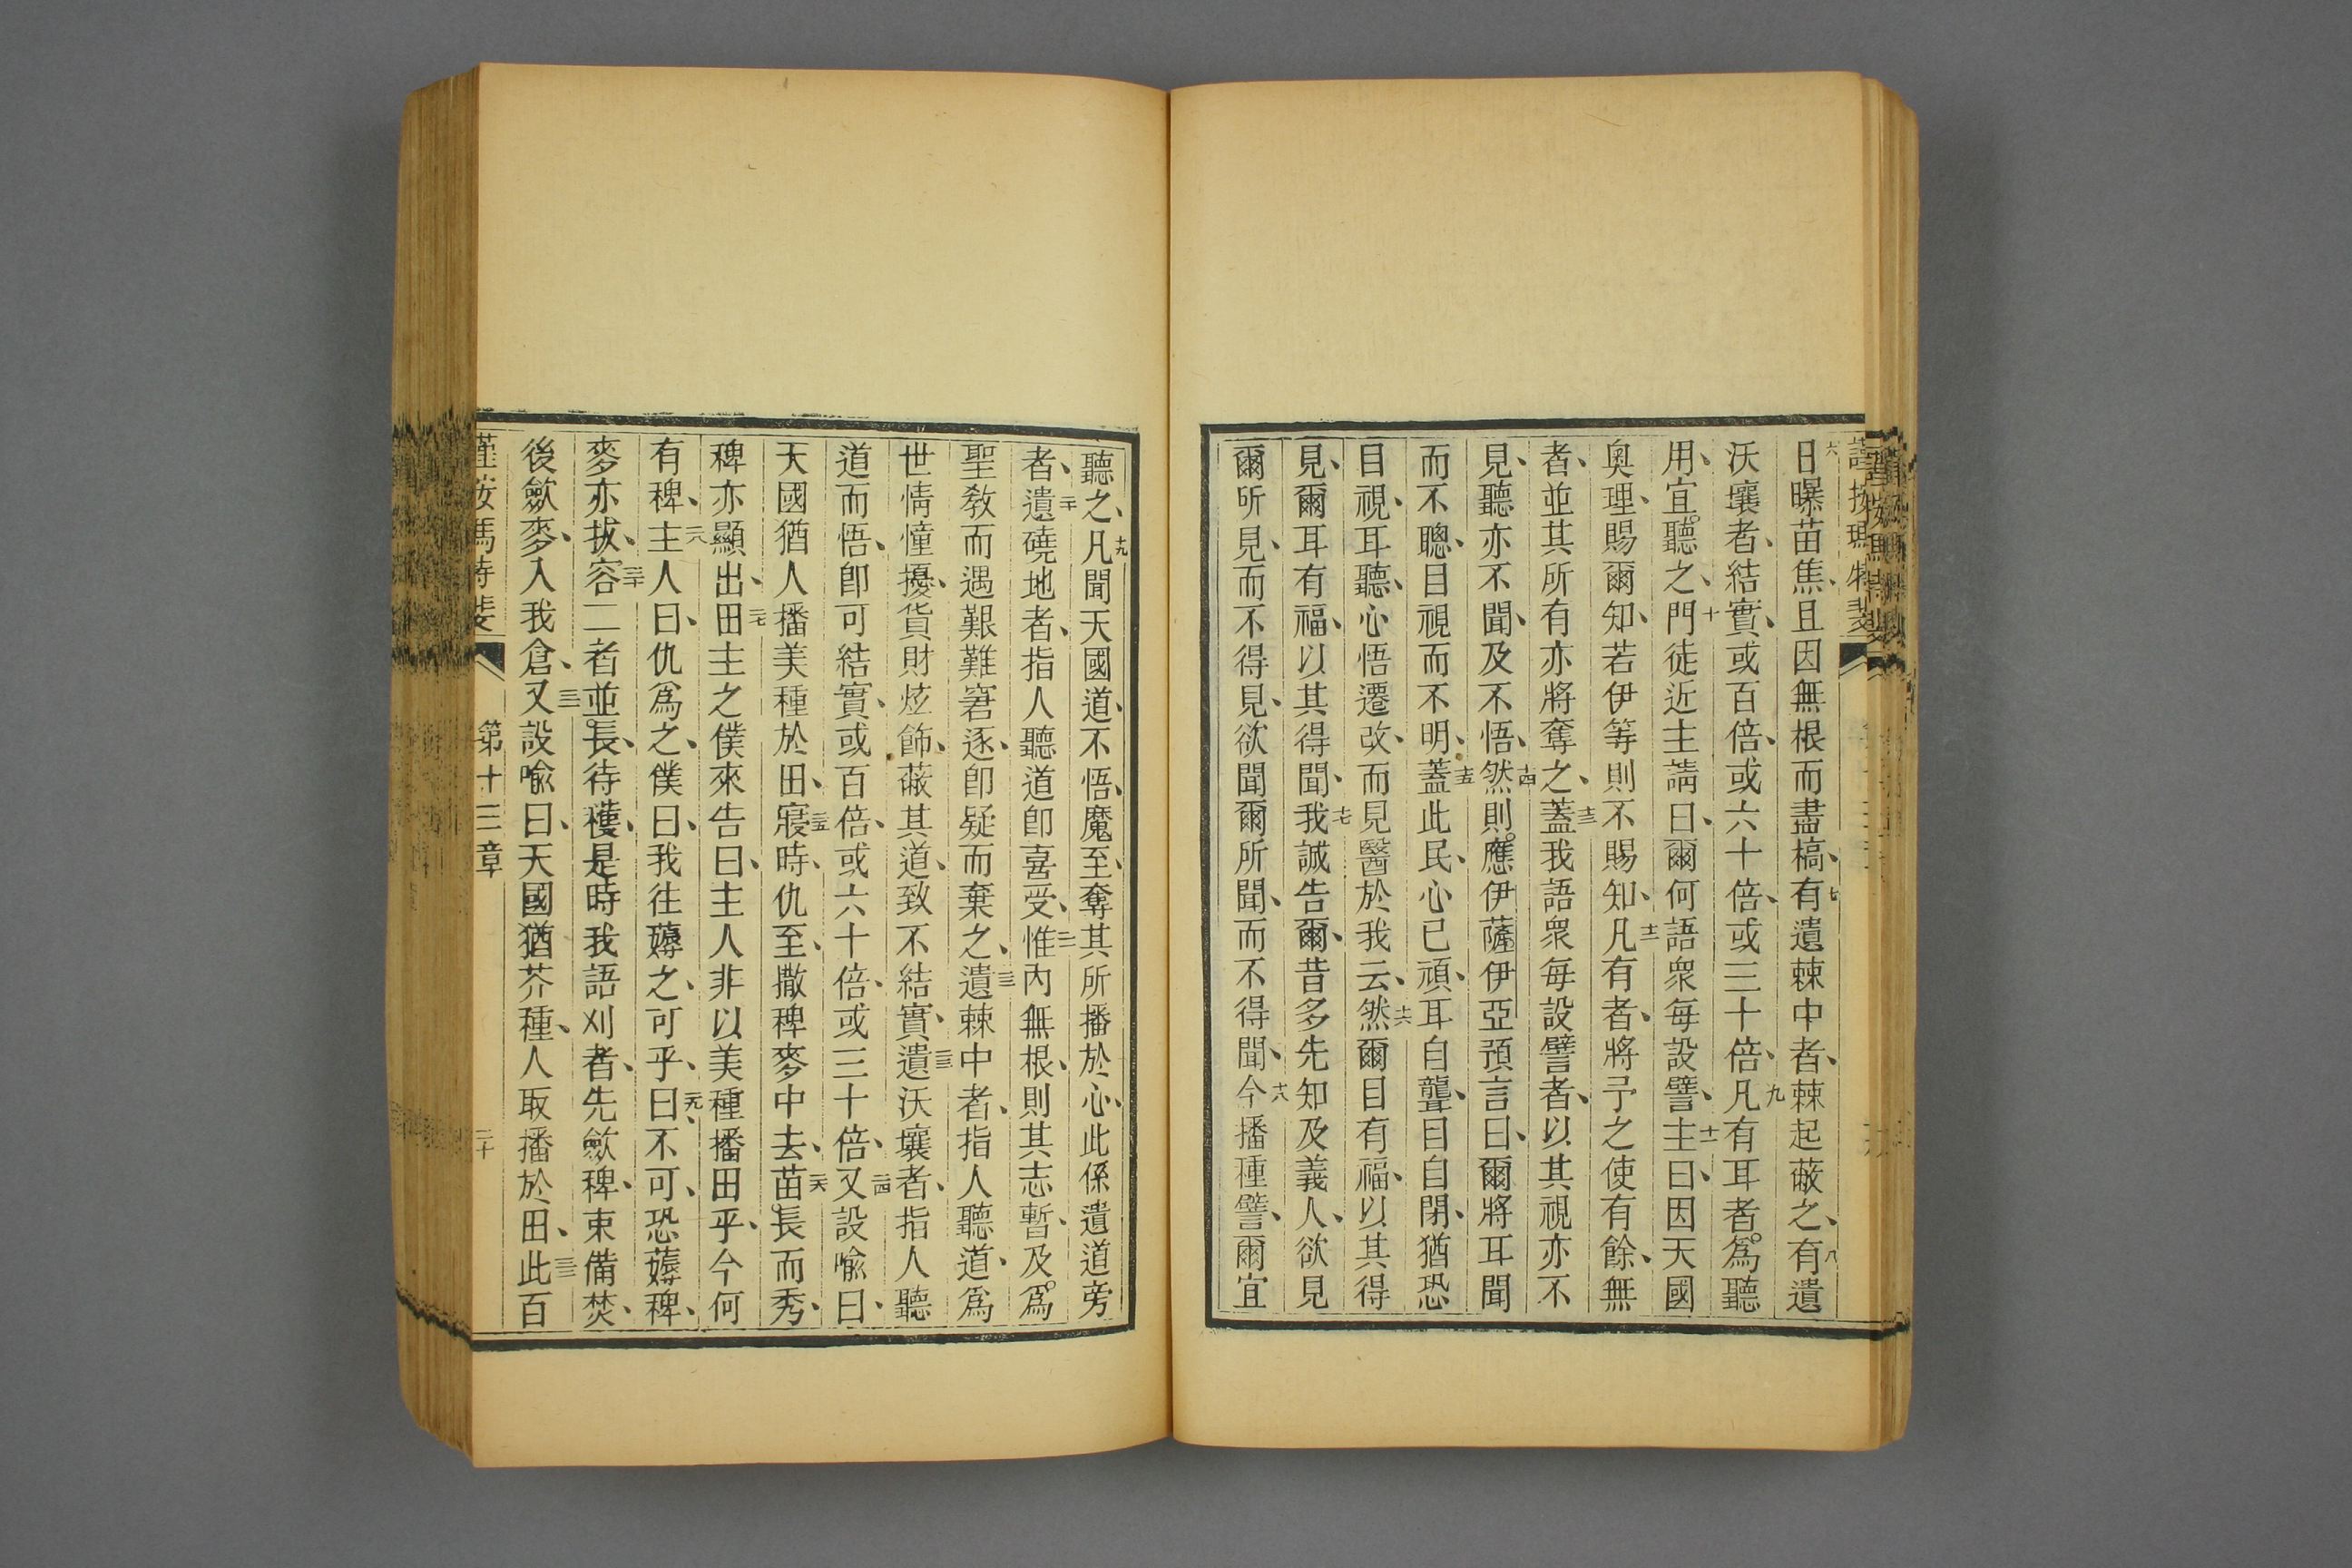 六日曝苗焦、且因無根而盡槁、七有遺棘中者、棘起蔽之、八有遺
沃壤者、結實、或百倍、或六十倍、或三十倍、九凡有耳者。爲聽
用、宜。聽之、十門徒近主請曰、爾何語眾每設譬、十一主曰、因天國
奧理、賜爾知、若伊等則不賜知、十二凡有者、將予之使有餘、無
者、並其所有亦將奪之、十三蓋我語眾每設譬者、以其視亦不
見、聽亦不聞、及不悟、十四然則。應伊薩伊亞預言曰、爾將耳聞
而不聰、目視而不明、十五蓋此民、心已頑、耳自聾、目自閉、猶恐
目視、耳聽、心悟遷改、而見醫於我云、十六然爾目有福、以其得
見、爾耳有福、以其得聞、十七我誠告爾、昔多先知及義人、欲見
爾所見、而不得見、欲聞爾所聞、而不得聞、十八今播種譬、爾宜
聽之、十九凡聞天國道、不悟、魔至、奪其所播於心、此係遺道旁
者、二十遺磽地者、指人聽道卽喜受、二一惟內無根、則其志暫、及。爲
聖教而遇艱難窘逐、卽疑而棄之、二二遺棘中者、指人聽道、爲
世情憧擾、貨財炫飾、蔽其道、致不結實、二三遺沃壤者、指人聽
道而悟、卽可結實、或百倍、或六十倍、或三十倍、二四又設喩曰、
天國猶人播美種於田、二五寢時、仇至、撒稗麥中去、二六苗。長而秀、
稗亦顯出、二七田主之僕來告曰、主人非以美種播田乎、今何
有稗、二八主人曰、仇爲之、僕曰、我往薅之、可乎、二九曰、不可、恐薅稗、
麥亦拔、三十容二者並。長、待穫、是時我語刈者、先斂稗、束備焚、
後斂麥、入我倉、三一又設喩曰、天國猶芥種、人取播於田、三二此百
第十三章
二十